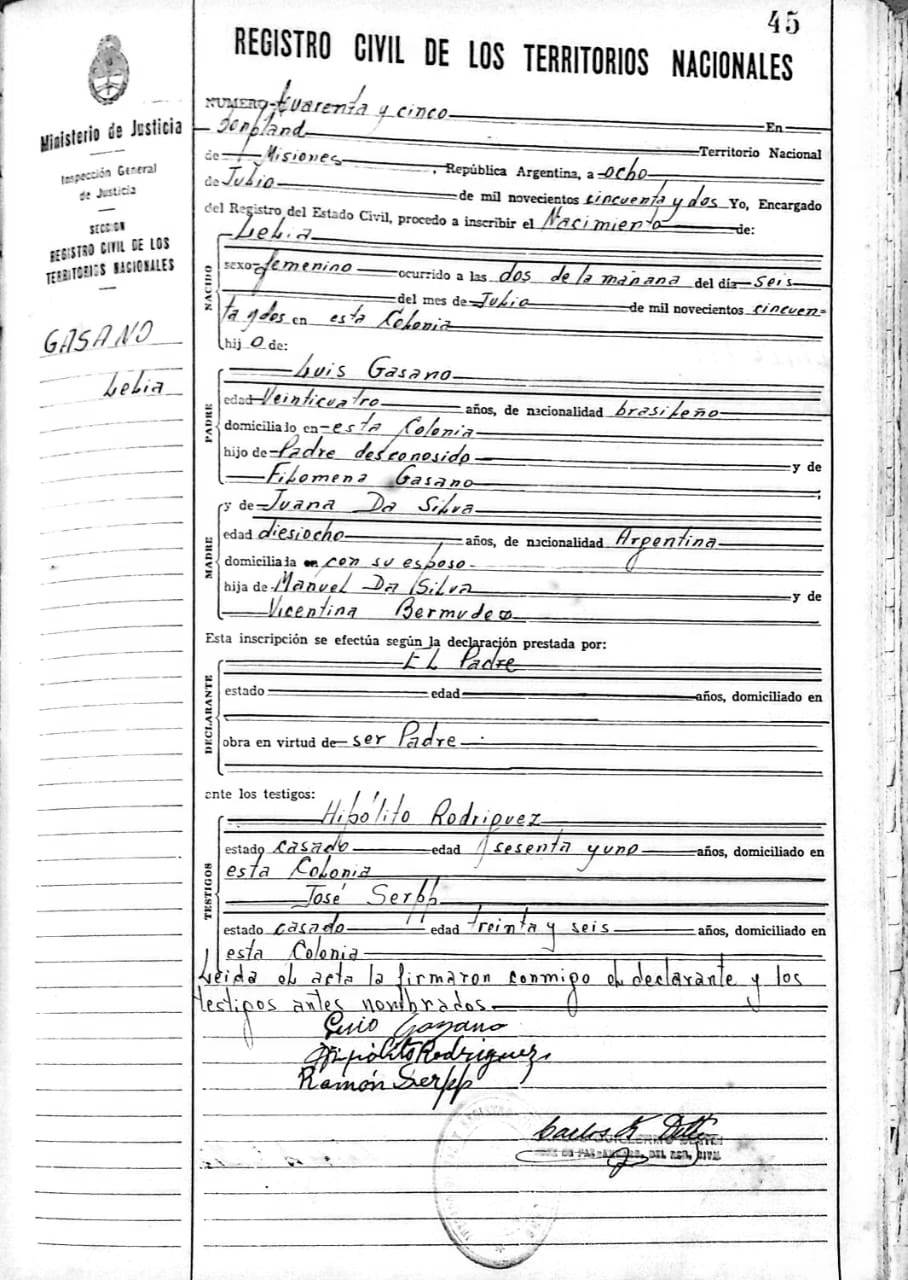 45
REGISTRO CIVIL DE LOS TERRITORIOS NACIONALES
Ministerio de Justicia
Inspección General
de Justicia
SECCION
REGISTRO CIVIL DE LOS
TERRITORIOS NACIONALES
GASANO
Lelia
NUMERO Cuarenta y cinco En
Territorio Nacional
de Misiones, República Argentina, a ocho
de Julio de mil novecientos cincuenta y dos Yo, Encargado
del Registro del Estado Civil, procedo a inscribir el Nacimiento de:
NACIDO
Lelia
sexo femenino ocurrido a las dos de la mañana del día seis
del mes de Julio de mil novecientos cincuen=
ta y dos en esta Colonia
hij o de:
PADRE
Luis Gasano
edad Veinticuatro años, de nacionalidad brasileño
domiciliado en esta Colonia
hijo de Padre desconosido y de
Filomena Gasano
MADRE
y de Juana Da Silva
edad diesiocho años, de nacionalidad Argentina
domiciliada en con su esposo
hija de Manuel Da Silva y de
Vicentina Bermudez
Esta inscripción se efectúa según la declaración prestada por:
DECLARANTE
El Padre
estado edad años, domiciliado en
obra en virtud de ser Padre
ante los testigos:
TESTIGOS
Hipólito Rodriguez
estado casado edad sesenta y uno años, domiciliado en
esta Colonia
José Serpp
estado casado edad treinta y seis años, domiciliado en
esta Colonia
Leida el acta la firmaron conmigo el declarante y los
testigos antes nombrados.
Hipólito Rodriguez
Ramón Serpp